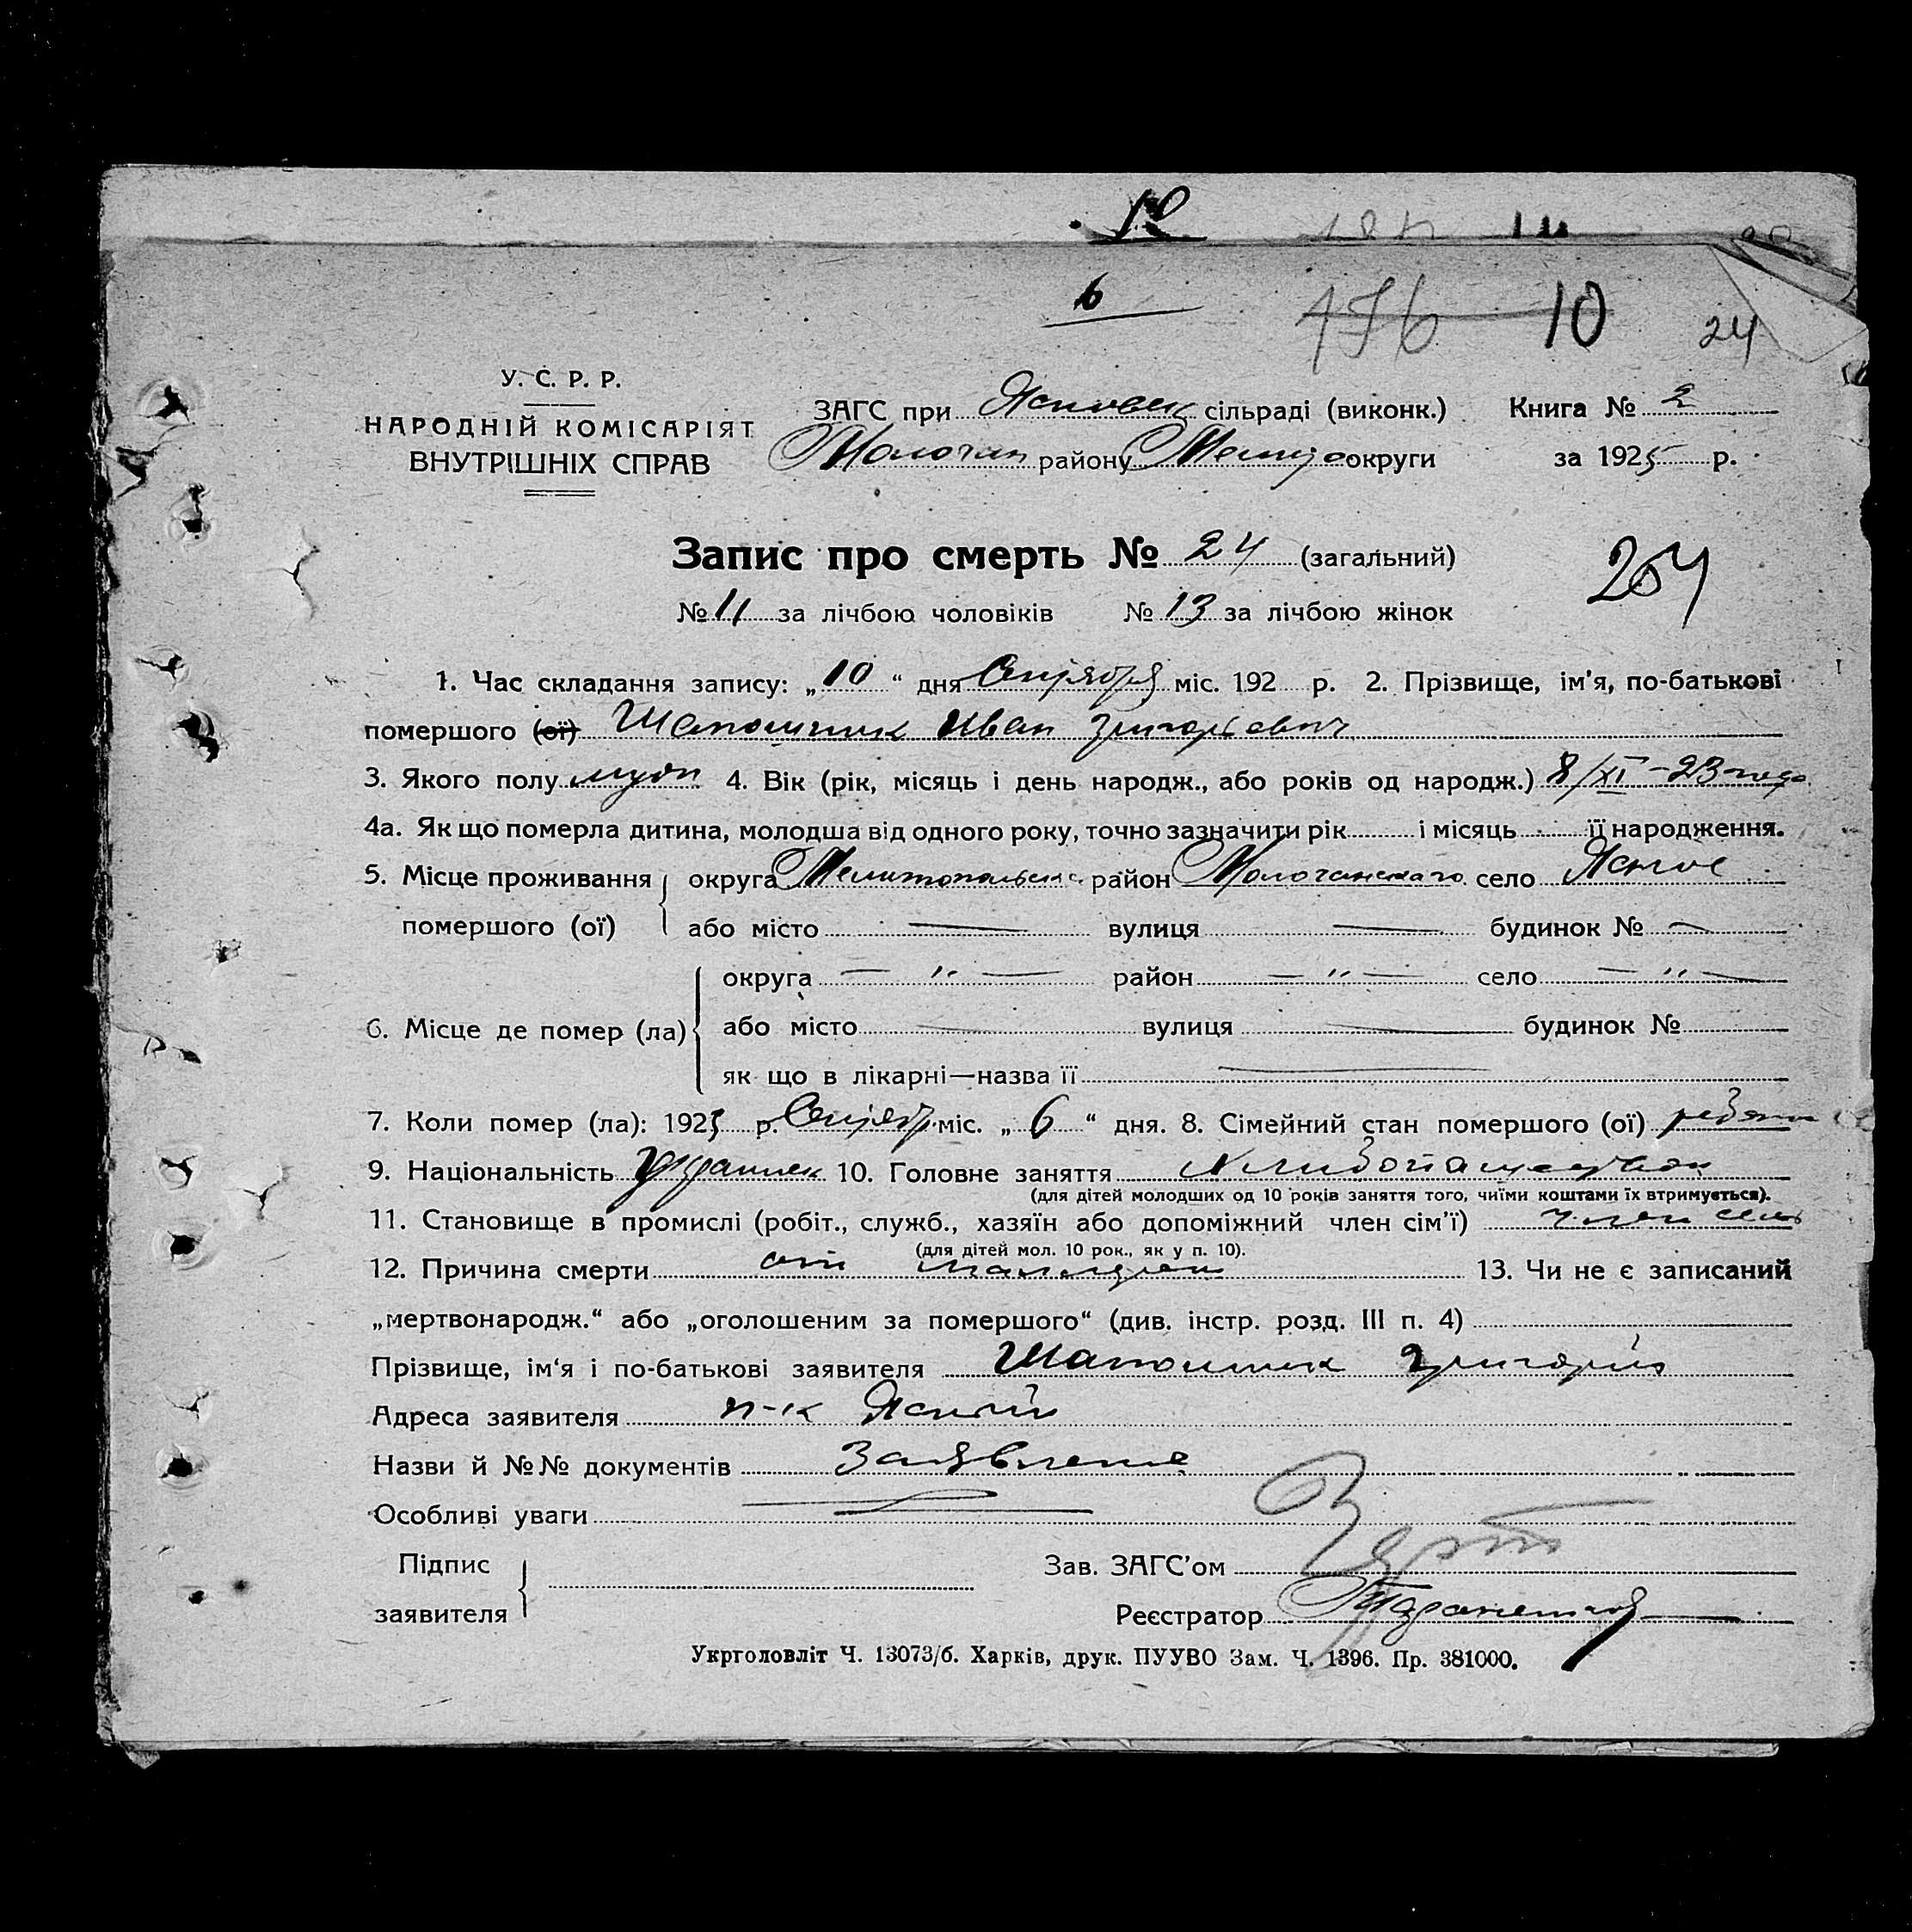 10
6
176 10 24
У. С. Р. Р.
НАРОДНІЙ КОМІСАРІЯТ
ВНУТРІШНІХ СПРАВ
ЗАГС при Ясновск сільраді (виконк.) Книга № 2
Молочан району округи за 1925 р.
Запис про смерть № 24 (загальний)
254
№ 11 за лічбою чоловіків № 13 за лічбою жінок
1. Час складання запису: „10“ дня Сентября міс. 192 р. 2. Прізвище, ім'я, по-батькові
помершого (ої) Шапошник Иван Григорьевич
3. Якого полу мужч 4. Вік (рік, місяць і день народж., або років од народж.) 8/XI-23 года
4а. Як що померла дитина, молодша від одного року, точно зазначити рік і місяць її народження.
5. Місце проживання округа Мелитопольск район Молочанскаго село Ясное
помершого (ої) або місто — вулиця — будинок № —
округа — „ — район — „ — село — „ —
6. Місце де помер (ла) або місто — вулиця — будинок №
як що в лікарні—назва її —
7. Коли помер (ла): 1925 р. Сентябр міс. „6“ дня. 8. Сімейний стан помершого (ої)
9. Національність 10. Головне заняття Хлебопашество
(для дітей молодших од 10 років заняття того, чиїми коштами їх втримується).
11. Становище в промислі (робіт., служб., хазяїн або допоміжний член сім'ї) член семь
(для дітей мол. 10 рок., як у п. 10).
12. Причина смерти от 13. Чи не є записаний
„мертвонародж.“ або „оголошеним за помершого“ (див. інстр. розд. III п. 4)
Прізвище, ім'я і по-батькові заявителя Шапошник Григорий
Адреса заявителя п-к Ясный
Назви й №№ документів Заявление
Особливі уваги —
Підпис Зав. ЗАГС'ом
заявителя Реєстратор
Укрголовліт Ч. 13073/б. Харків, друк. ПУУВО Зам. Ч. 1396. Пр. 381000.